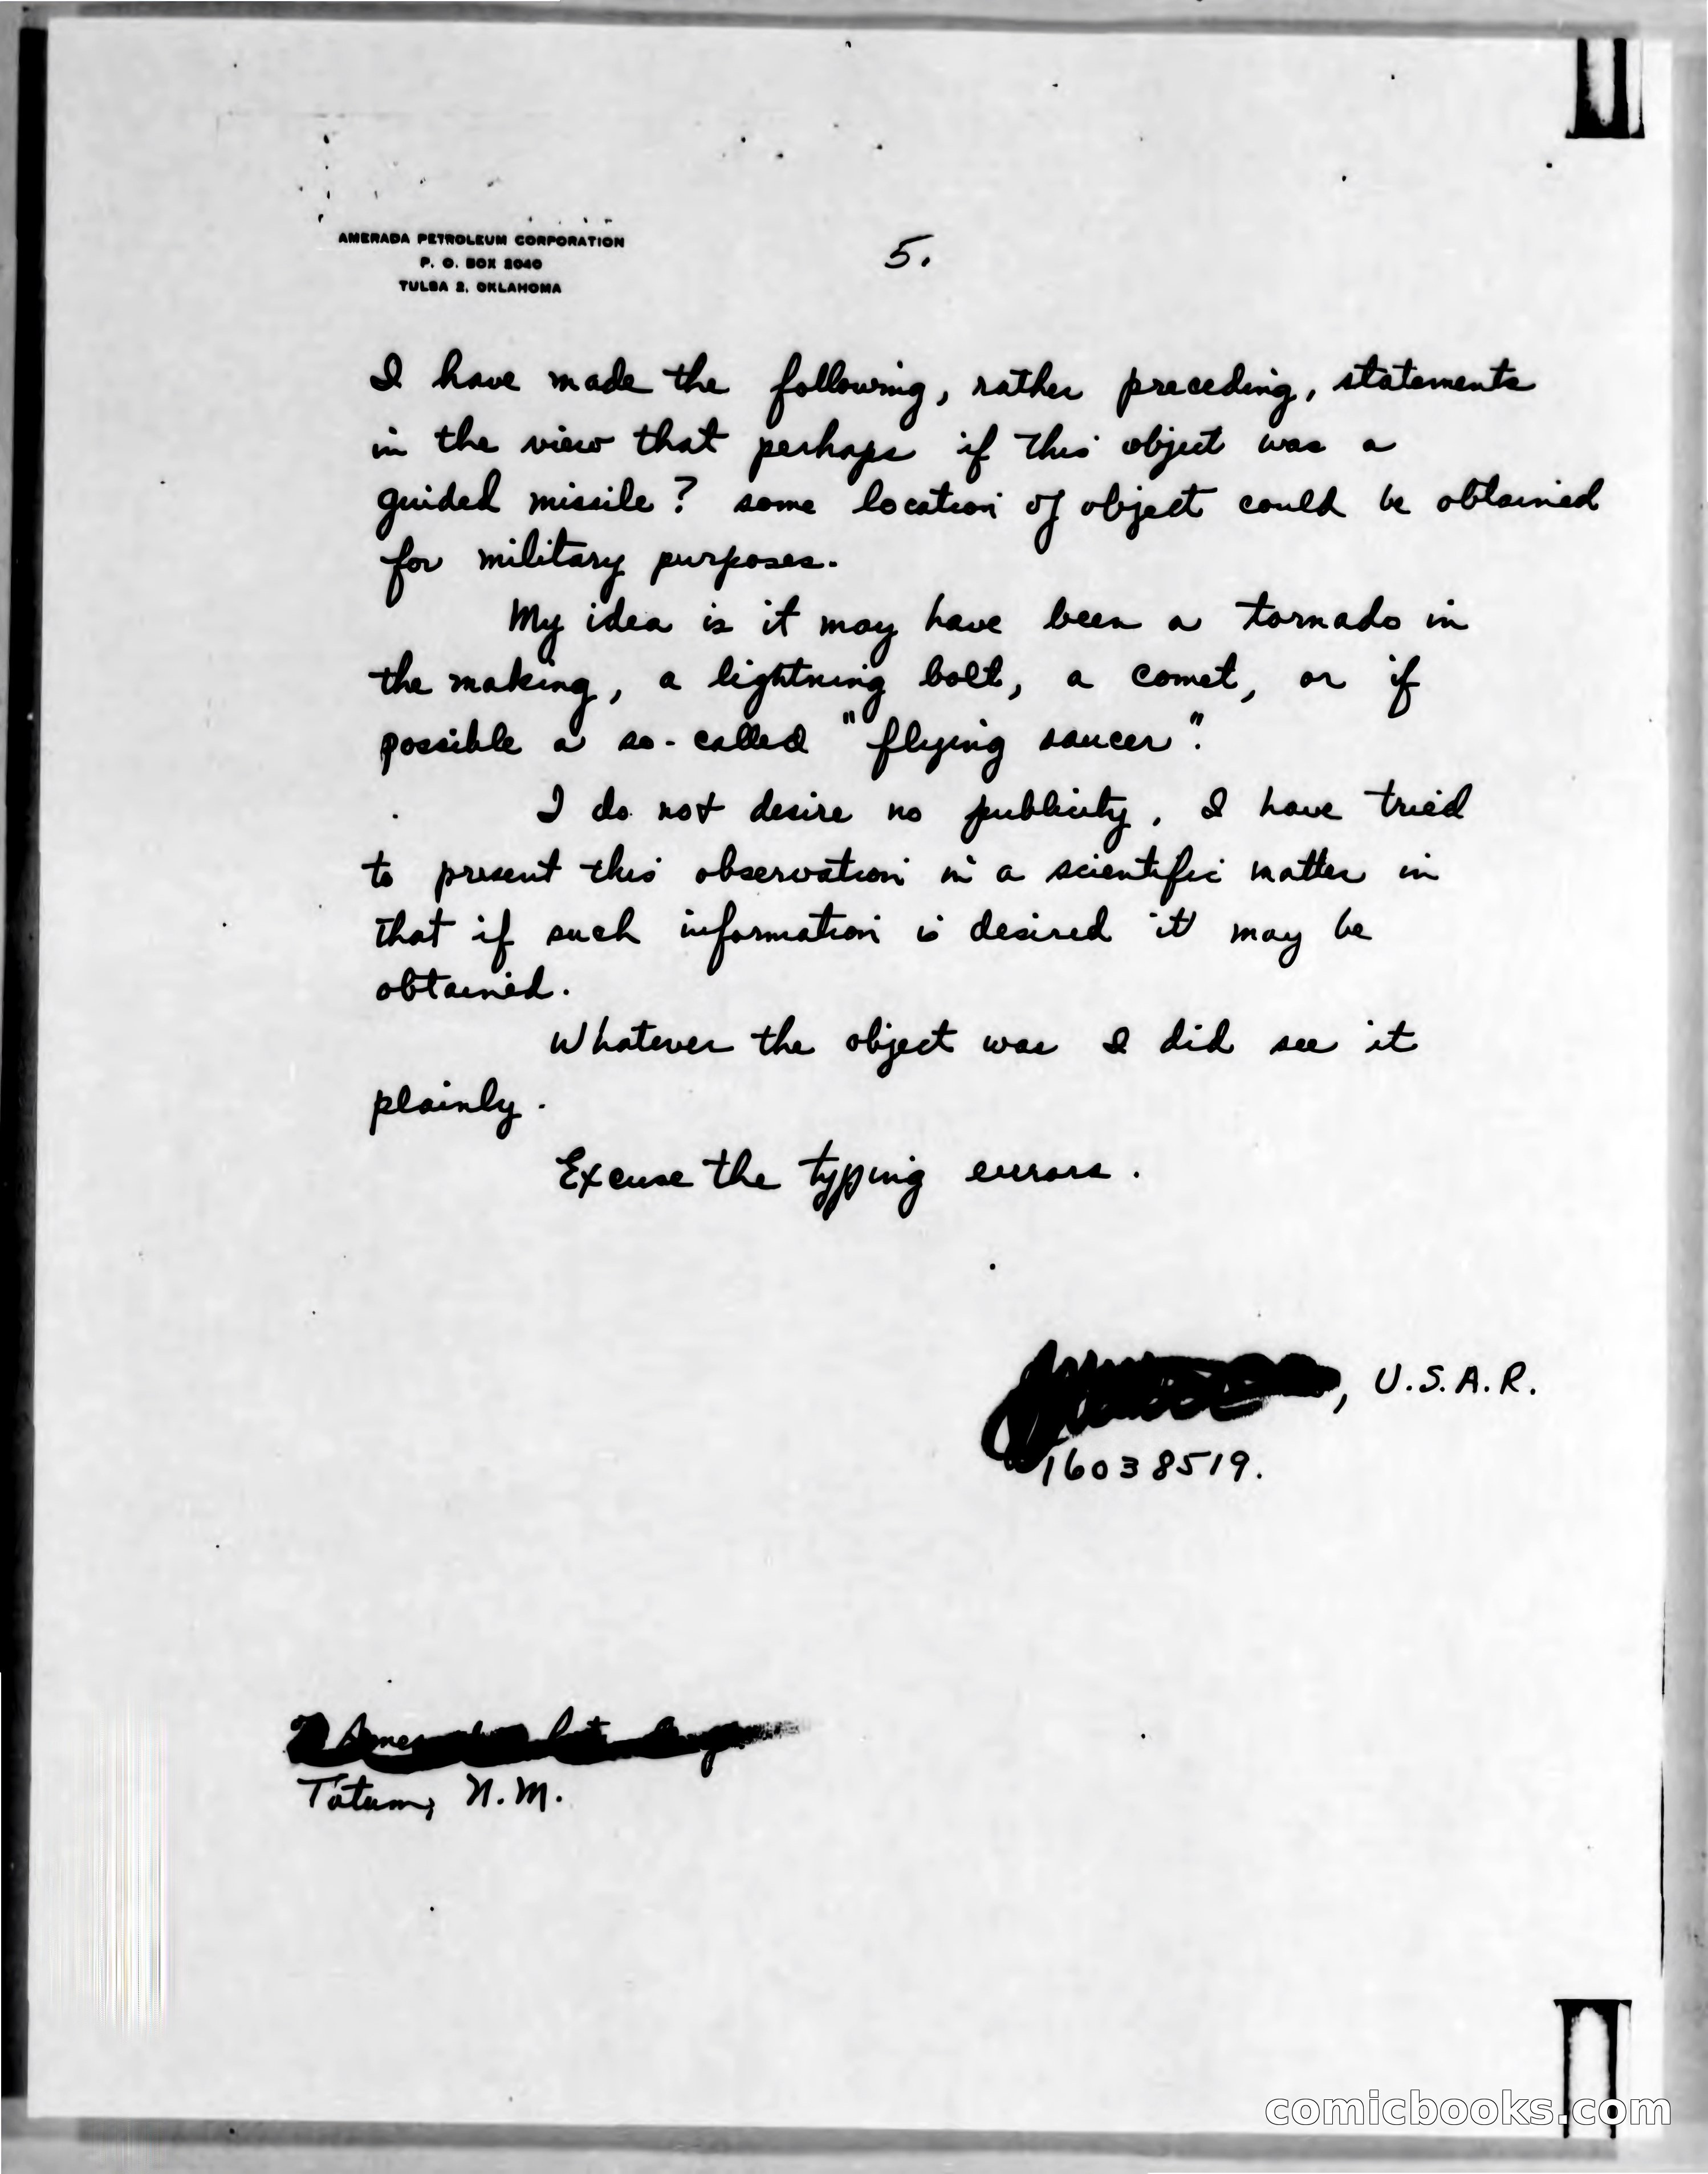 AMERADA PETROLEUM CORPORATION
P. O. BOX 2040
TULSA 2, OKLAHOMA
5.
I have made the following, rather preceding, statements
in the view that perhaps if this object was a
guided missile? some location of object could be obtained
for military purposes.
My idea is it may have been a tornado in
the making, a lightning bolt, a comet, or if
possible a so-called "flying saucer".
I do not desire no publicity. I have tried
to present this observation in a scientific matter in
that if such information is desired it may be
obtained.
Whatever the object was I did see it
plainly.
Excuse the typing errors.
, U.S.A.R.
16038519.
Tatum, N.M.
comicbooks.com